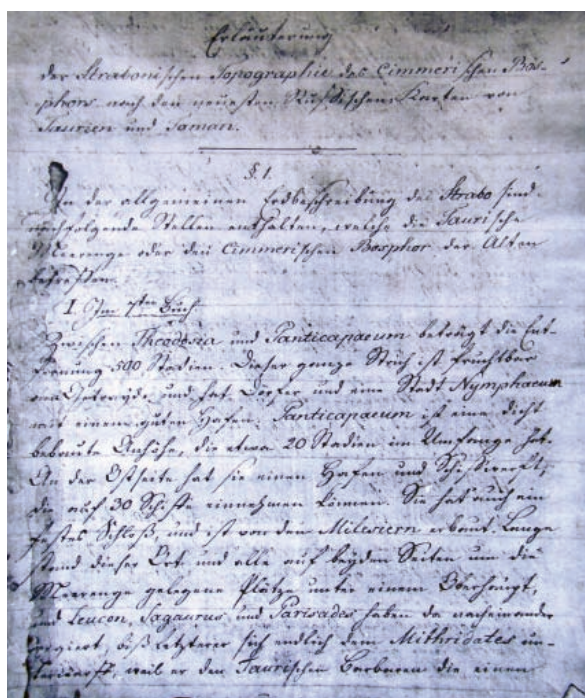 Erläuterung
der Strabonischen Topographie des Cimmerischen Bos-
phors nach den neuesten Russischen Karten von
Taurien und Taman.
§ 1.
In der allgemeinen Erdbeschreibung des Strabo sind
nachfolgende Stellen enthalten, welche die Taurische
Meerenge oder den Cimmerischen Bosphor der Alten
betreffen.
I. Im 7ten Buch
Zwischen Theodosia und Panticapaeum beträgt die Ent-
fernung 500 Stadien. Dieser ganze Strich ist fruchtbar
und hat Dörfer und eine Stadt Nymphaeum
mit einem guten Hafen. Panticapaeum ist eine dicht
bebaute Anhöhe, die etwa 20 Stadien im Umfange hat.
An der Ostseite hat sie einen Hafen und Schiffswerft,
die auf 30 Schiffe einnehmen können. Sie hat auch ein
festes Schloß, und ist von den Milesiern erbaut. Lange
stand dieser Ort und alle auf beyden Seiten um die
Meerenge gelegene Plätze unter einem Oberhaupt,
und Leucon, Sagaurus und Parisades haben da nacheinander
regiert, biß letzterer sich endlich dem Mithridates un-
terwarft, weil er den Taurischen Barbaren die einen